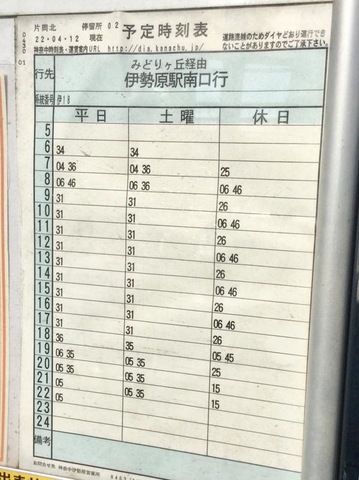 片岡北 停留所 02
22・04・12 現在
予定時刻表
道路混雑のためダイヤどおり運行できないことがありますのでご了承下さい
神奈中時刻表・運賃案内URL http://dia.kanachu.jp/
0430 01
行先 みどりヶ丘経由
伊勢原駅南口行
系統番号 伊18
平日 土曜 休日
5
6 34 34
7 04 36 04 36 25
8 06 46 06 36 06 46
9 31 31 26
10 31 31 06 46
11 31 31 26
12 31 31 06 46
13 31 31 26
14 31 31 06 46
15 31 31 26
16 31 31 06 46
17 31 31 26
18 36 35 06 45
19 06 35 05 35 25
20 05 35 05 35 15
21 05 05 35 15
22 05
23
24
備考
お問合せ先 神奈中伊勢原営業所